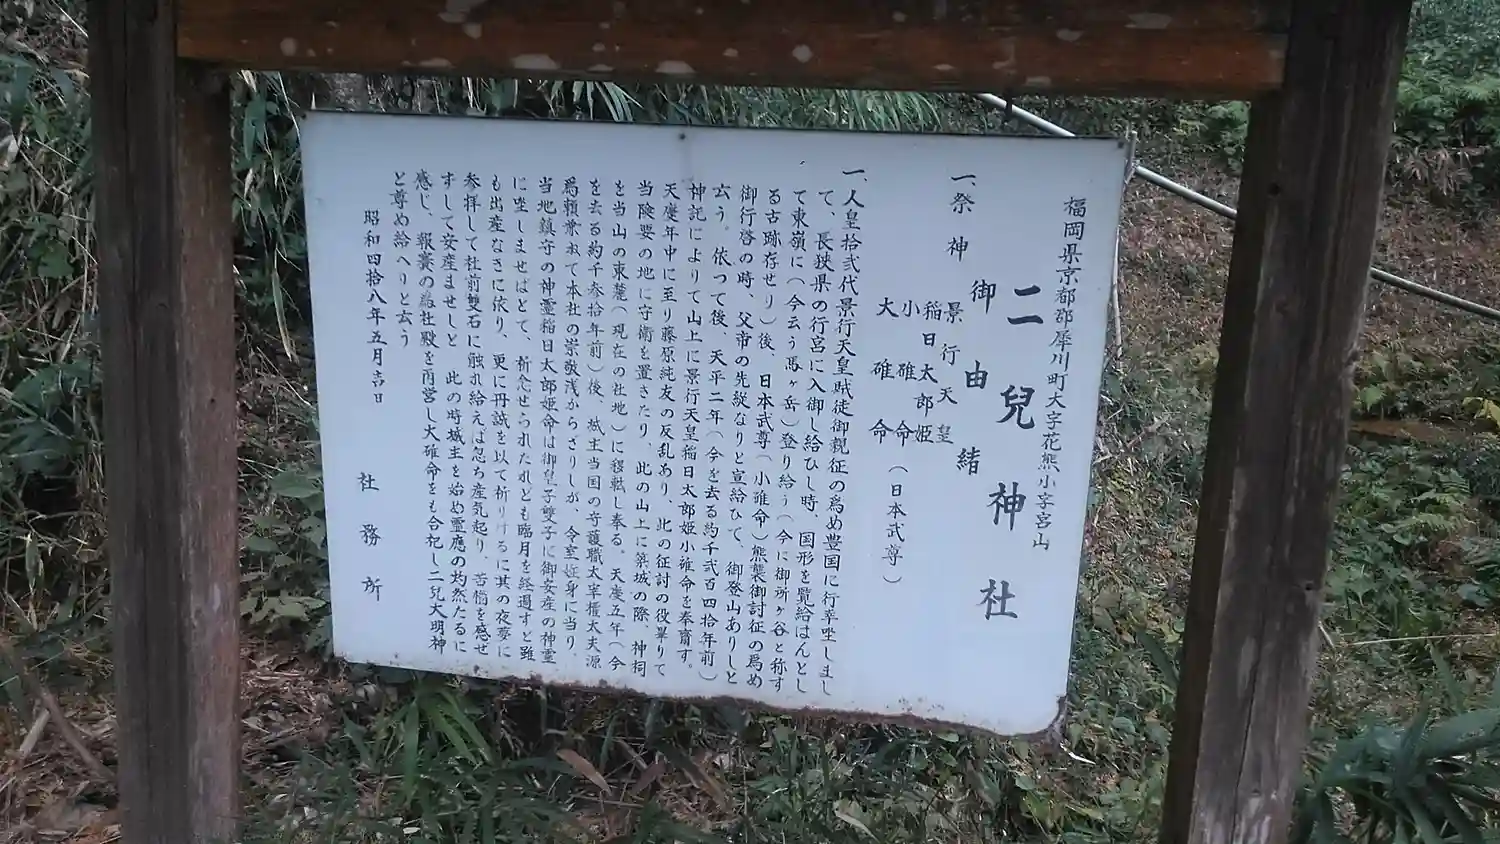 福岡県京都郡犀川町大字花熊小字宮山
二兒神社
御由結
一、祭神
景行天皇
稲日太郎姫
小碓命(日本武尊)
大碓命
一、人皇拾弐代景行天皇賊徒御親征の為め豊国に行幸坐しまし
て、長狭県の行宮に入御し給ひし時、国形を覧給はんとし
て東嶺に(今云う馬ヶ岳)登り給う(今に御所ヶ谷と称す
る古跡存せり)後、日本武尊(小碓命)熊襲御討征の為め
御行啓の時、父帝の先蹤なりと宣給ひて、御登山ありしと
云う。依つて後、天平二年(今を去る約千弐百四拾年前)
神託によりて山上に景行天皇稲日太郎姫小碓命を奉齎す。
天慶年中に至り藤原純友の反乱あり、此の征討の役畢りて
当険要の地に守衛を置さたり、此の山上に築城の際、神祠
を当山の東麓(現在の社地)に移戦し奉る。天慶五年(今
を去る約千参拾年前)後、城主当国の守護職太宰権大夫源
為頼兼ねて本社の崇敬浅からざりしが、令室妊身に当り、
当地鎮守の神霊稲日太郎姫命は御皇子雙子に御安産の神霊
に坐しませばとて、祈念せられたれども臨月を経過すと雖
も出産なさに依り、更に丹誠を以て祈りけるに其の夜夢に
参拝して社前雙石に触れ給えば忽ち産気起り、苦悩を感せ
すして安産ませしと 此の時城主を始め霊應の灼然たるに
感じ、報賽の為社殿を再営し大碓命をも合祀し二兒大明神
と尊め給へりと云う
昭和四拾八年五月吉日
社務所